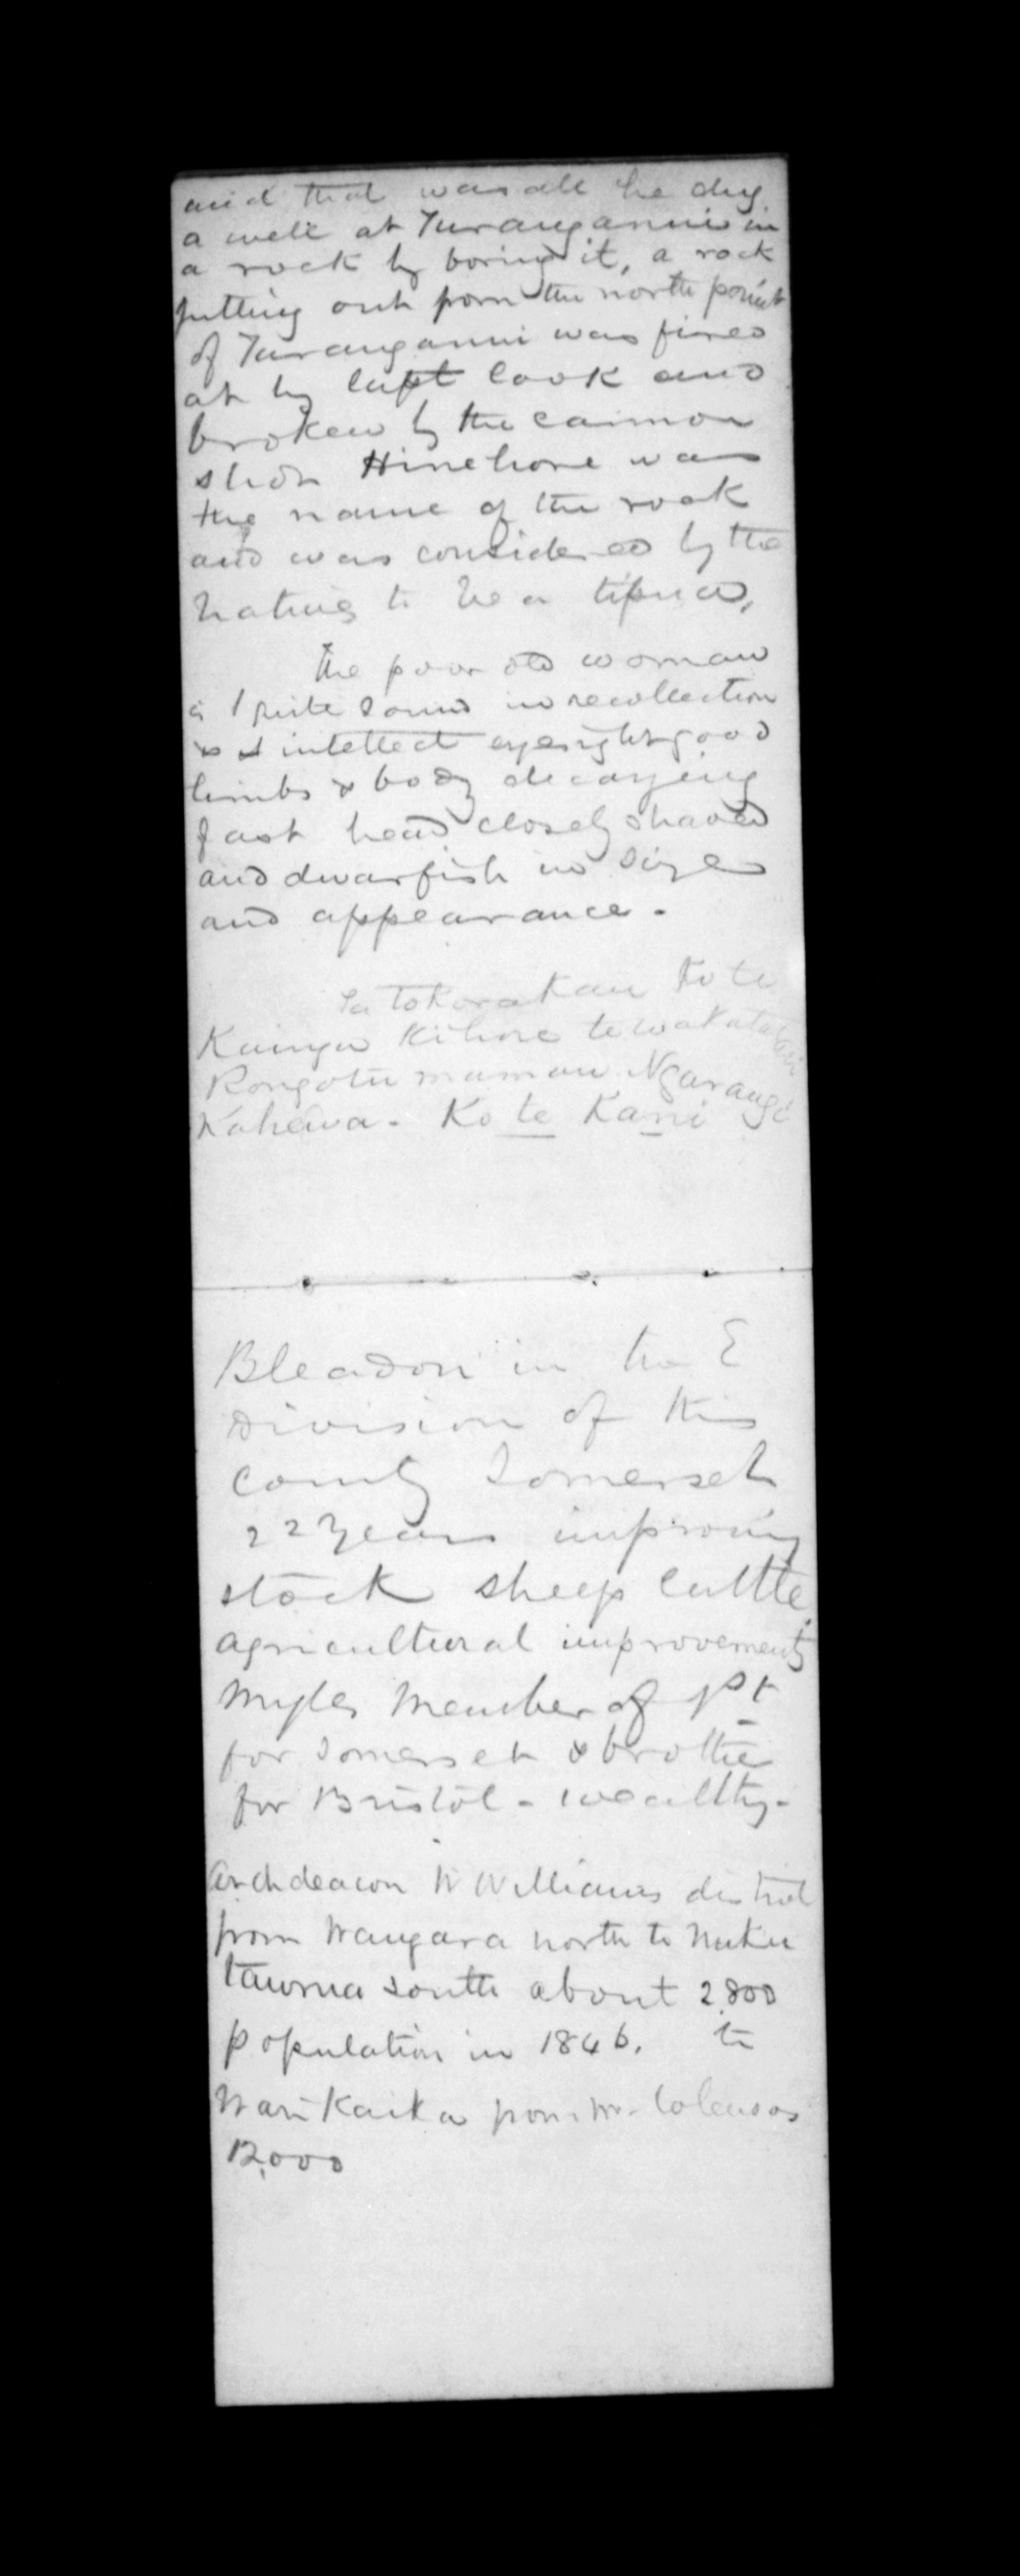 and that was all he dug
a well at Turanganui in
a rock by boring it, a rock
jutting out from the north point
of Turanganui was fired
at by Capt Cook and
broken by the cannon
shot Hinehore was
the name of the rock
and was considered by the
natives to be a tipua,
The poor old woman
is quite sound in recollection
& intellect eyesight good
limbs & body decaying
fast head closely shaved
and dwarfish in size
and appearance.
ko te
Kainga
Ngarangi
Kahewa - Ko te Kani
Bleadon in the E
Division of this
County Somerset
22 years improving
stock sheep cattle
agricultural improvements
Myles Member of Pt
for Somerset & brother
for Bristol - wealthy -
Archdeacon W Williams district
from Wangara north to Nuku
taurua south about 2,800
population in 1846. to
from Mr Colensos
12,000